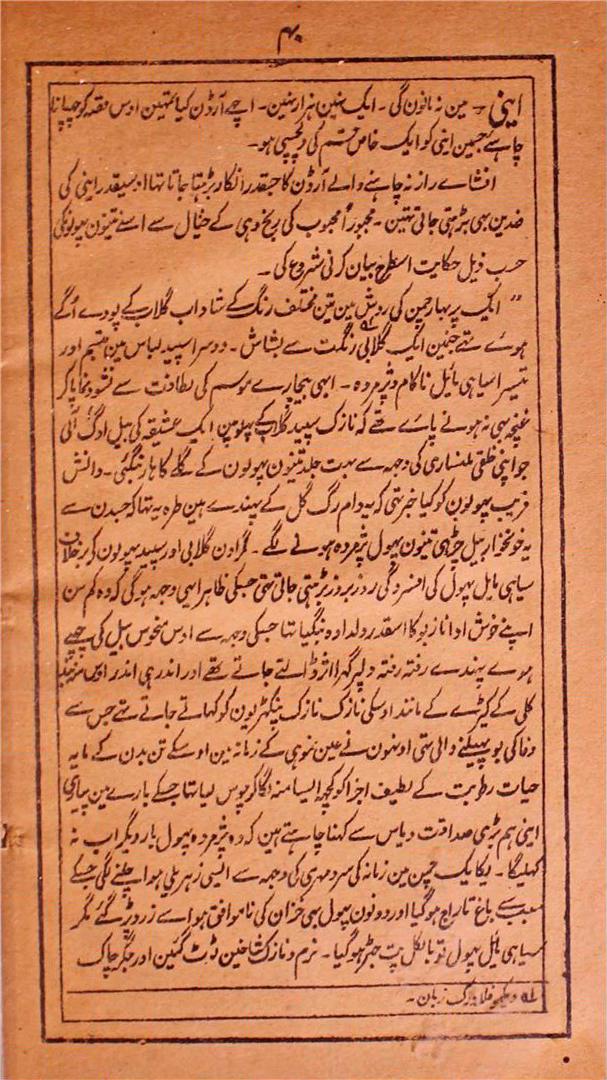 ۴۰
اینی ۔ مین نہ مانون گی ۔ ایک نہین ہزار نہین ۔ اچھے آرڈن کیا تمہین اوس قصہ کو چھپانا
چاہئے جسمین اینی کو ایک خاص قسم کی دلچسپی ہو ۔
افشاے راز نہ چاہنے والے آرڈن کا جسقدر انکار بڑہتا جاتا تھا اوسیقدر اینی کی
ضدین بھی بڑہتی جاتی تہین ۔ مجبوراً محبوب کی رنج دہی کے خیال سے اسنے تینون پھولونکی
حسب ذیل حکایت اسطرح بیان کرنی شروع کی ۔
" ایک پر بہار چمن کی روش مین تین مختلف رنگ کے شاداب گلاب کے پودے اُگے
ہوے تھے جنمین ایک گلابی رنگت سے بشاش ۔ دوسرا سپید لباس مین متبسم اور
تیسرا سیاہی مائل ناکام و پژمردہ ۔ ابھی بیچارے موسم کی لطافت سے نشو و نما پا کر
غنچہ بھی نہ ہونے پائے تھے کہ نازک سپید گلاب کے پہلو مین ایک عشیقہ کی بیل اوگ آئی
جو اپنی خلقی ملنساری کی وجہ سے بہت جلد تینون پھولون کے گلے کا ہار بنگئی ۔ دانش
فریب پھولون کو کیا خبر تہی کہ یہ دام رگ گل کے پھندے ہین طرہ یہ تھا کہ جسدن سے
یہ خونخوار بیل چڑہی تینون پھول پژمردہ ہونے لگے ۔ مگر اون گلابی اور سپید پھولون کے برخلاف
سیاہی مایل پھول کی افسردگی روز بروز بڑہتی جاتی تہی جسکی ظاہرا یہی وجہ ہوگی کہ وہ کم سن
اپنے خوش ادا نازبو کا اسقدر دلدادہ بنگیا تھا جسکی وجہ سے اوس منحوس بیل کی چھپے
ہوے پھندے رفتہ رفتہ دلپر گہرا اثر ڈالتے جاتے تھے اور اندر ہی اندر
کلی کے کیڑے کے مانند اوسکی نازک نازک پنکھڑیون کو کھاتے جاتے تھے جس سے
وفا کی بو پھیلنے والی تہی اونہون نے عین نمو ہی کے زمانہ مین اوسکے تن بدن کے مایہ
حیات رطوبت کے لطیف اجزا کو کچھ ایسا منہ لگا کر چوس لیا تھا جسکے بارے مین پیاری
اینی ہم بڑی صداقت و یاس سے کہنا چاہتے ہین کہ وہ پژمردہ پھول بار دیگر اب نہ
کھلیگا ۔ یکایک چمن مین زمانہ کی سرد مہری کی وجہ سے ایسی زہریلی ہوا چلنے لگی جسکے
سبب سے باغ تاراج ہوگیا اور دونون پھول بھی خزان کی ناموافق ہوا سے زرد پڑ گئے مگر
سیاہی مائل پھول تو بالکل پت جھڑ ہوگیا ۔ نرم و نازک شاخین ٹوٹ گئین اور جگر چاک
دیکھو زبان ۔